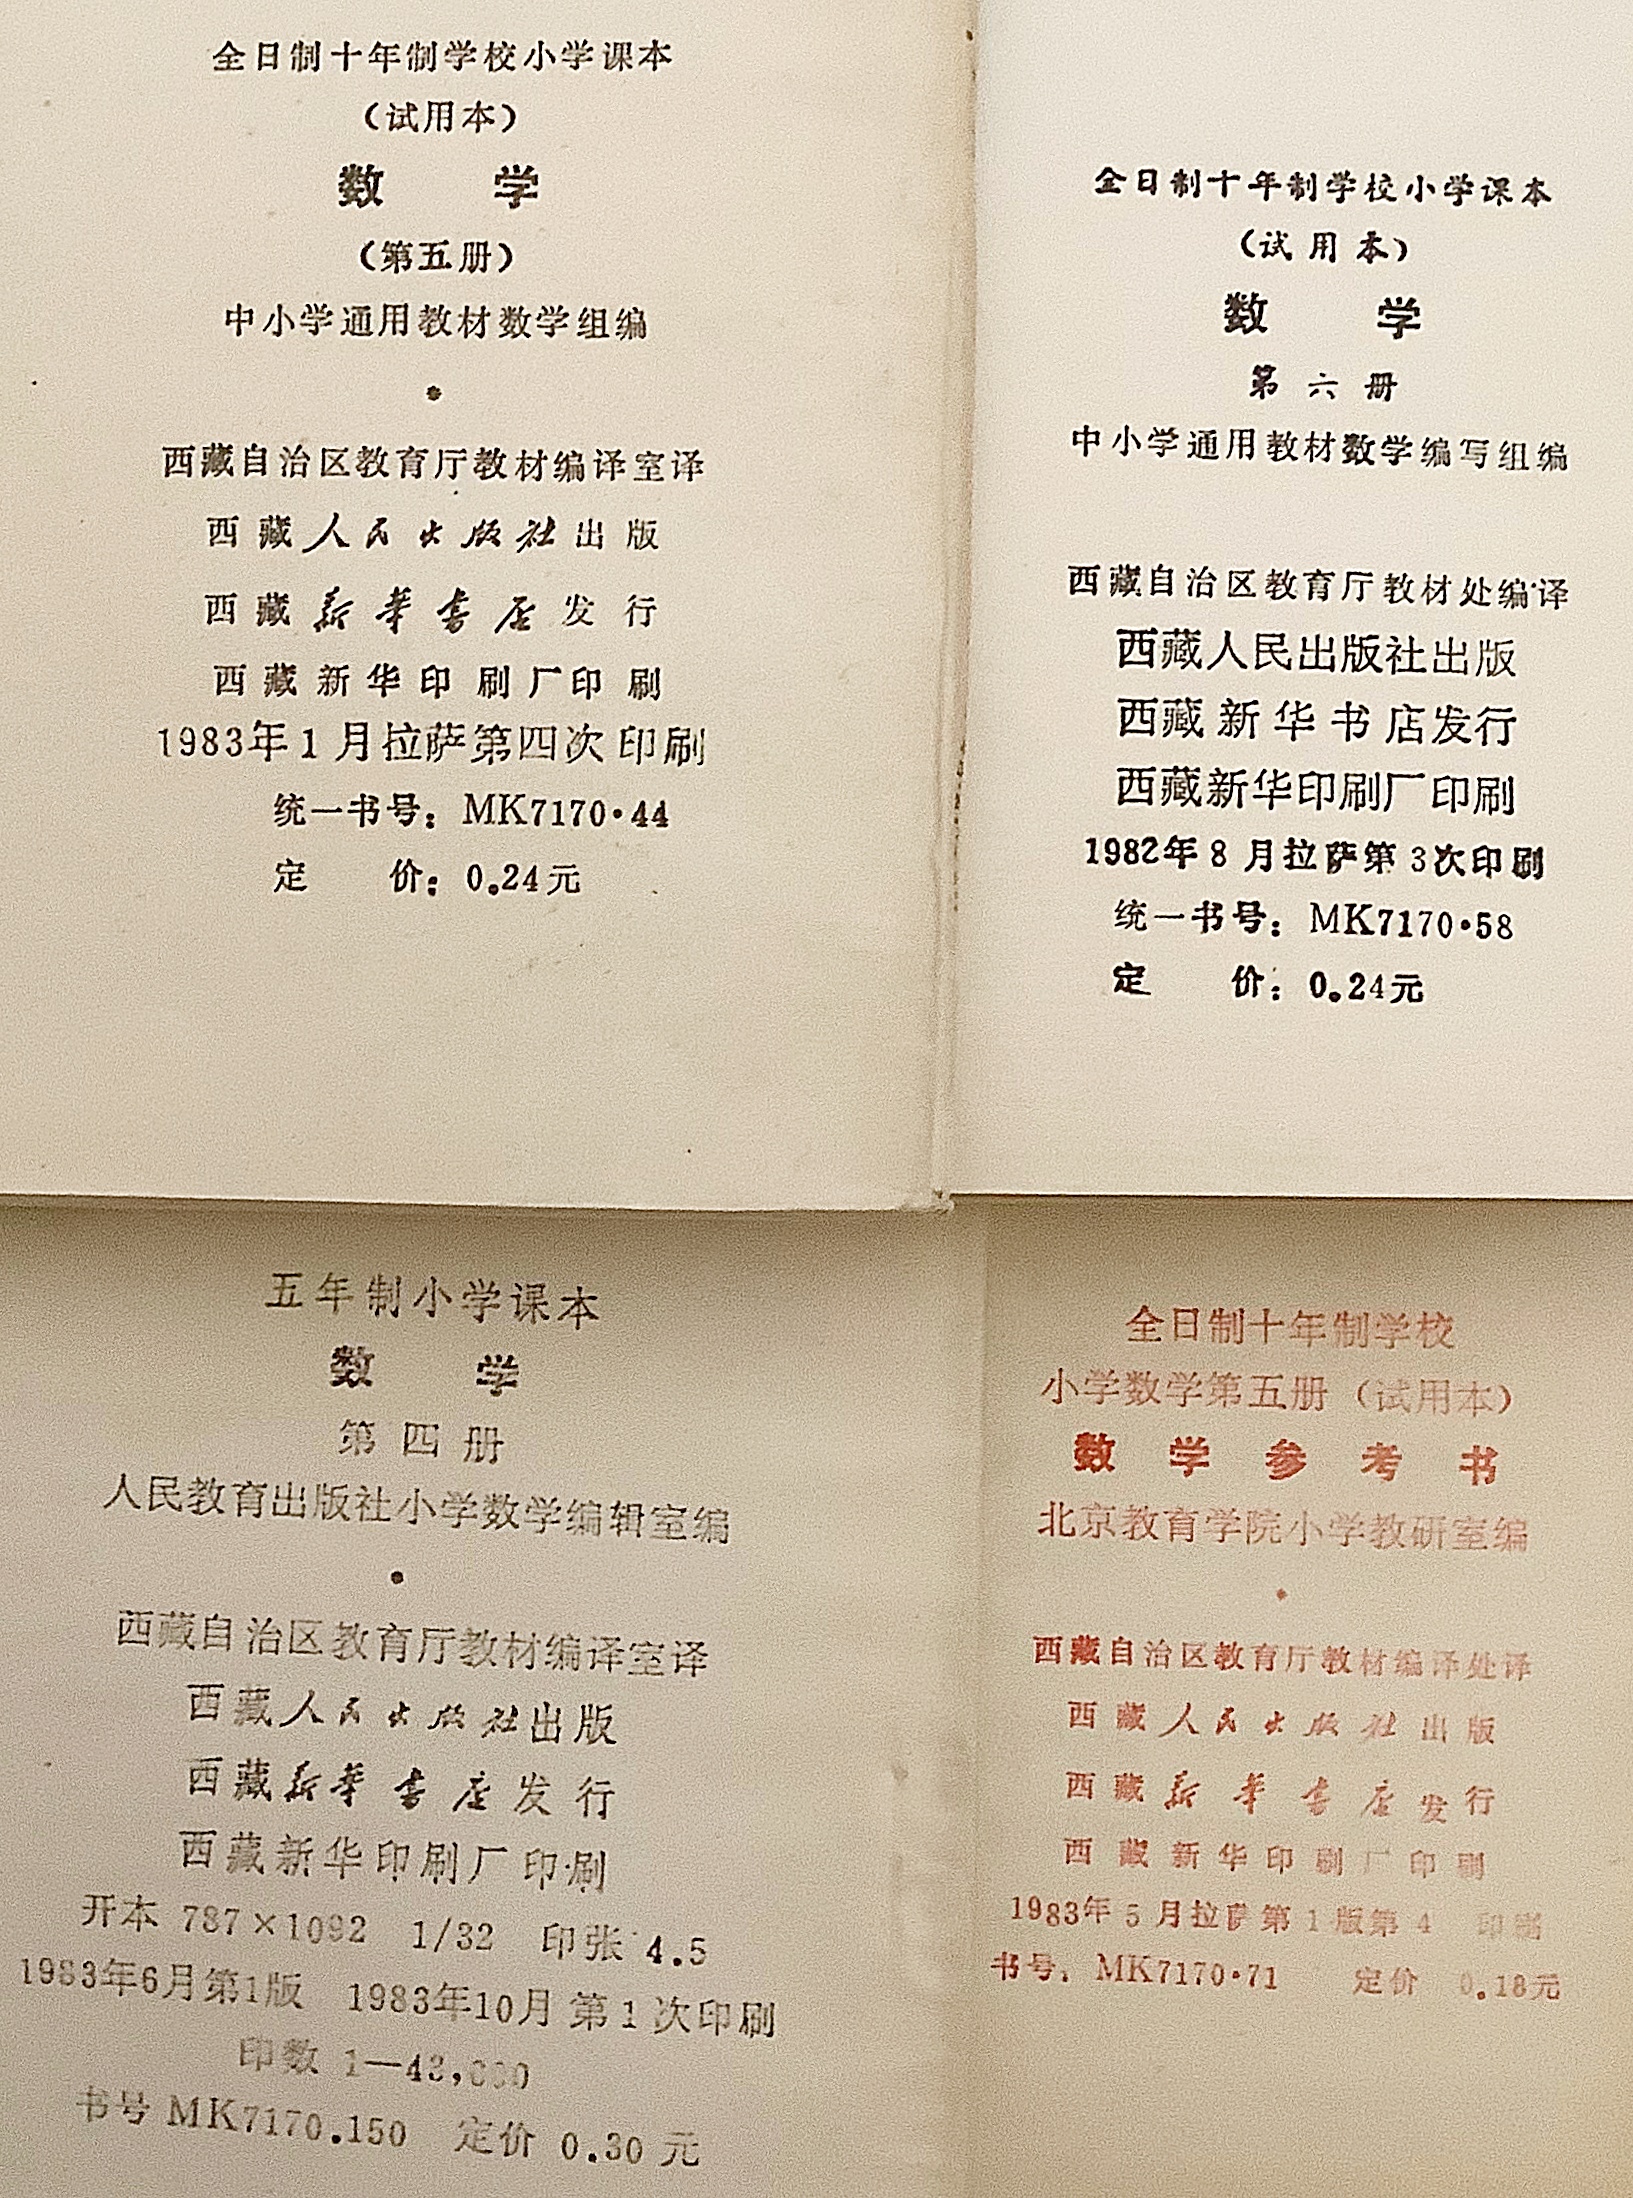 全日制十年制学校小学课本
（试用本）
数 学
（第五册）
中小学通用教材数学组编
西藏自治区教育厅教材编译室译
西藏人民出版社出版
西藏新華書店发行
西藏新华印刷厂印刷
1983年1月拉萨第四次印刷
统一书号：MK7170·44
定 价：0.24元
全日制十年制学校小学课本
（试用本）
数 学
第六册
中小学通用教材数学编写组编
西藏自治区教育厅教材处编译
西藏人民出版社出版
西藏新华书店发行
西藏新华印刷厂印刷
1982年8月拉萨第3次印刷
统一书号：MK7170·58
定 价：0.24元
五年制小学课本
数 学
第四册
人民教育出版社小学数学编辑室编
西藏自治区教育厅教材编译室译
西藏人民出版社出版
西藏新華書店发行
西藏新华印刷厂印刷
开本 787×1092 1/32 印张 4.5
1983年6月第1版 1983年10月第1次印刷
印数
书号 MK7170.150 定价 0.30 元
全日制十年制学校
小学数学第五册（试用本）
数学参考书
北京教育学院小学教研室编
西藏自治区教育厅教材编译处译
西藏人民出版社出版
西藏新華書店发行
西藏新华印刷厂印刷
1983年5月拉萨第1版第4 印刷
书号：MK7170·71 定价 0.18元